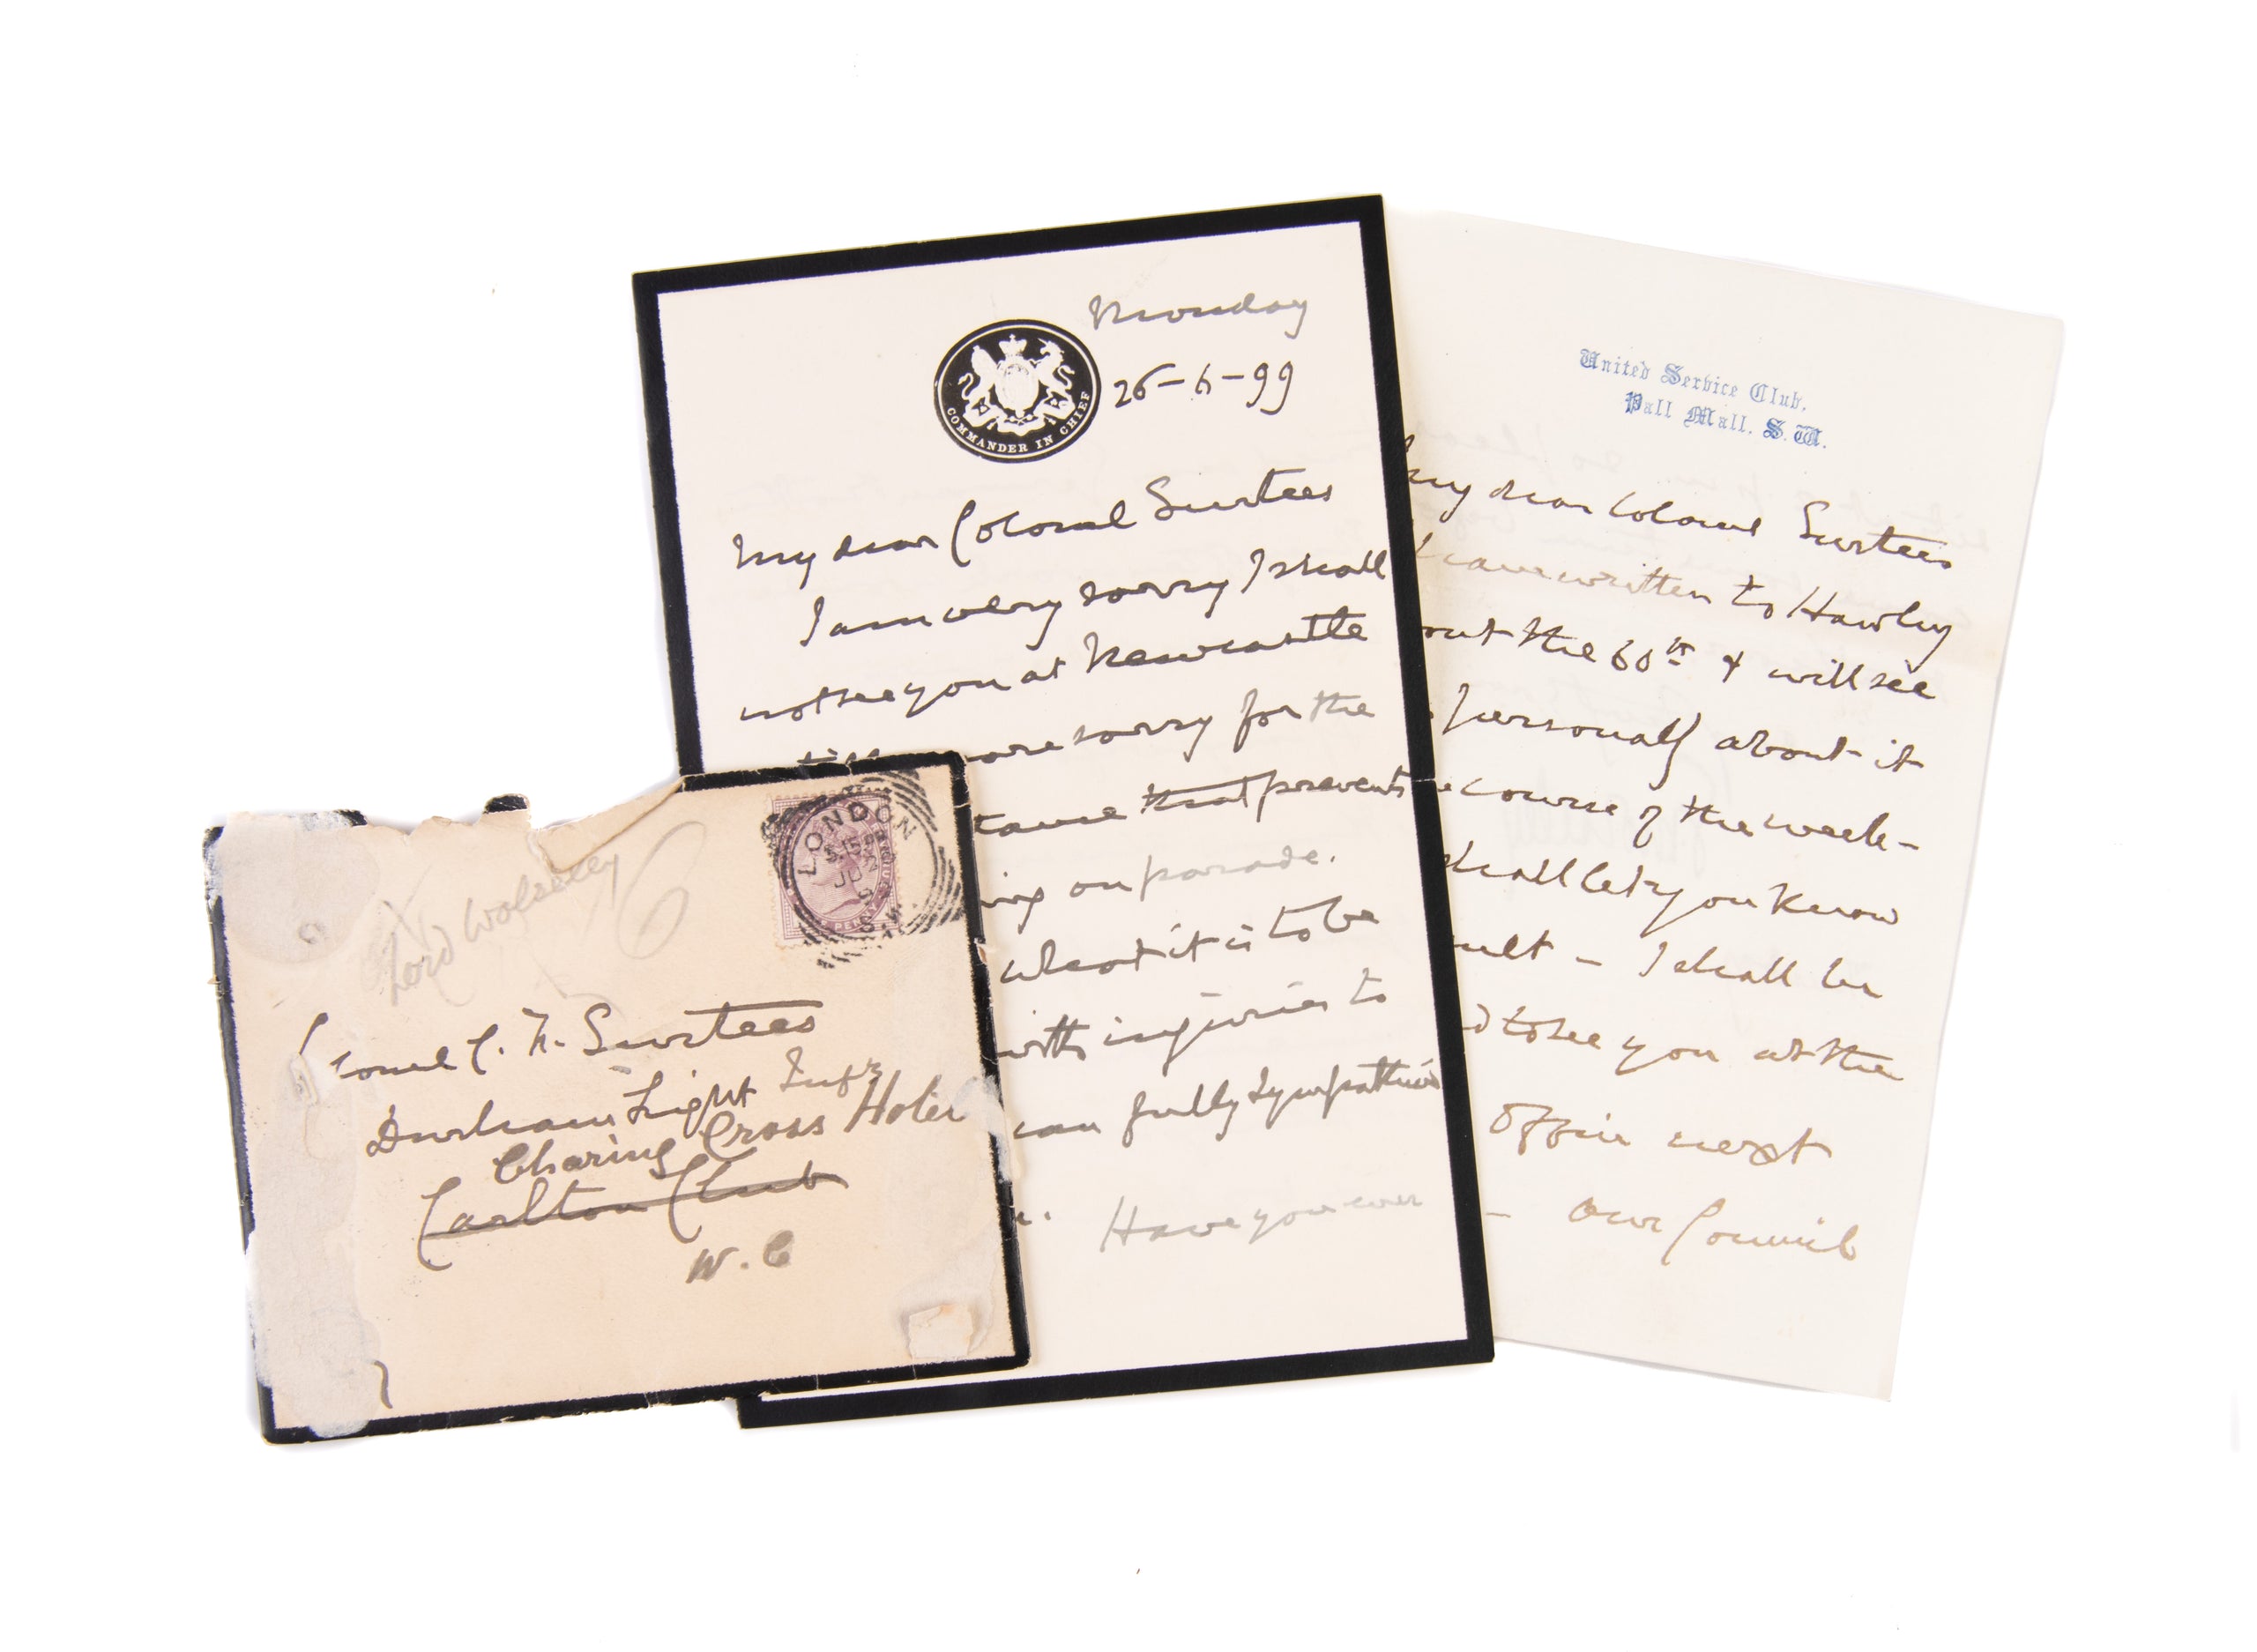 Monday
26-6-99
COMMANDER IN CHIEF
My dear Colonel Surtees
I am very sorry I shall
not see you at Newcastle
still more sorry for the
that prevents
on parade.
what it is to be
with injuries to
can fully sympathise
Have you ever
United Service Club,
Pall Mall. S.W.
My dear Colonel Surtees
I have written to Hawley
the 60th & will see
personally about it
course of the week-
shall let you know
- I shall be
to see you at the
Office next
- Our Council
Lord Wolseley
6
LONDON
JU
S.W.
C. F. Surtees
Durham Light Infy
Charing Cross Hotel
Carlton Club
W.C